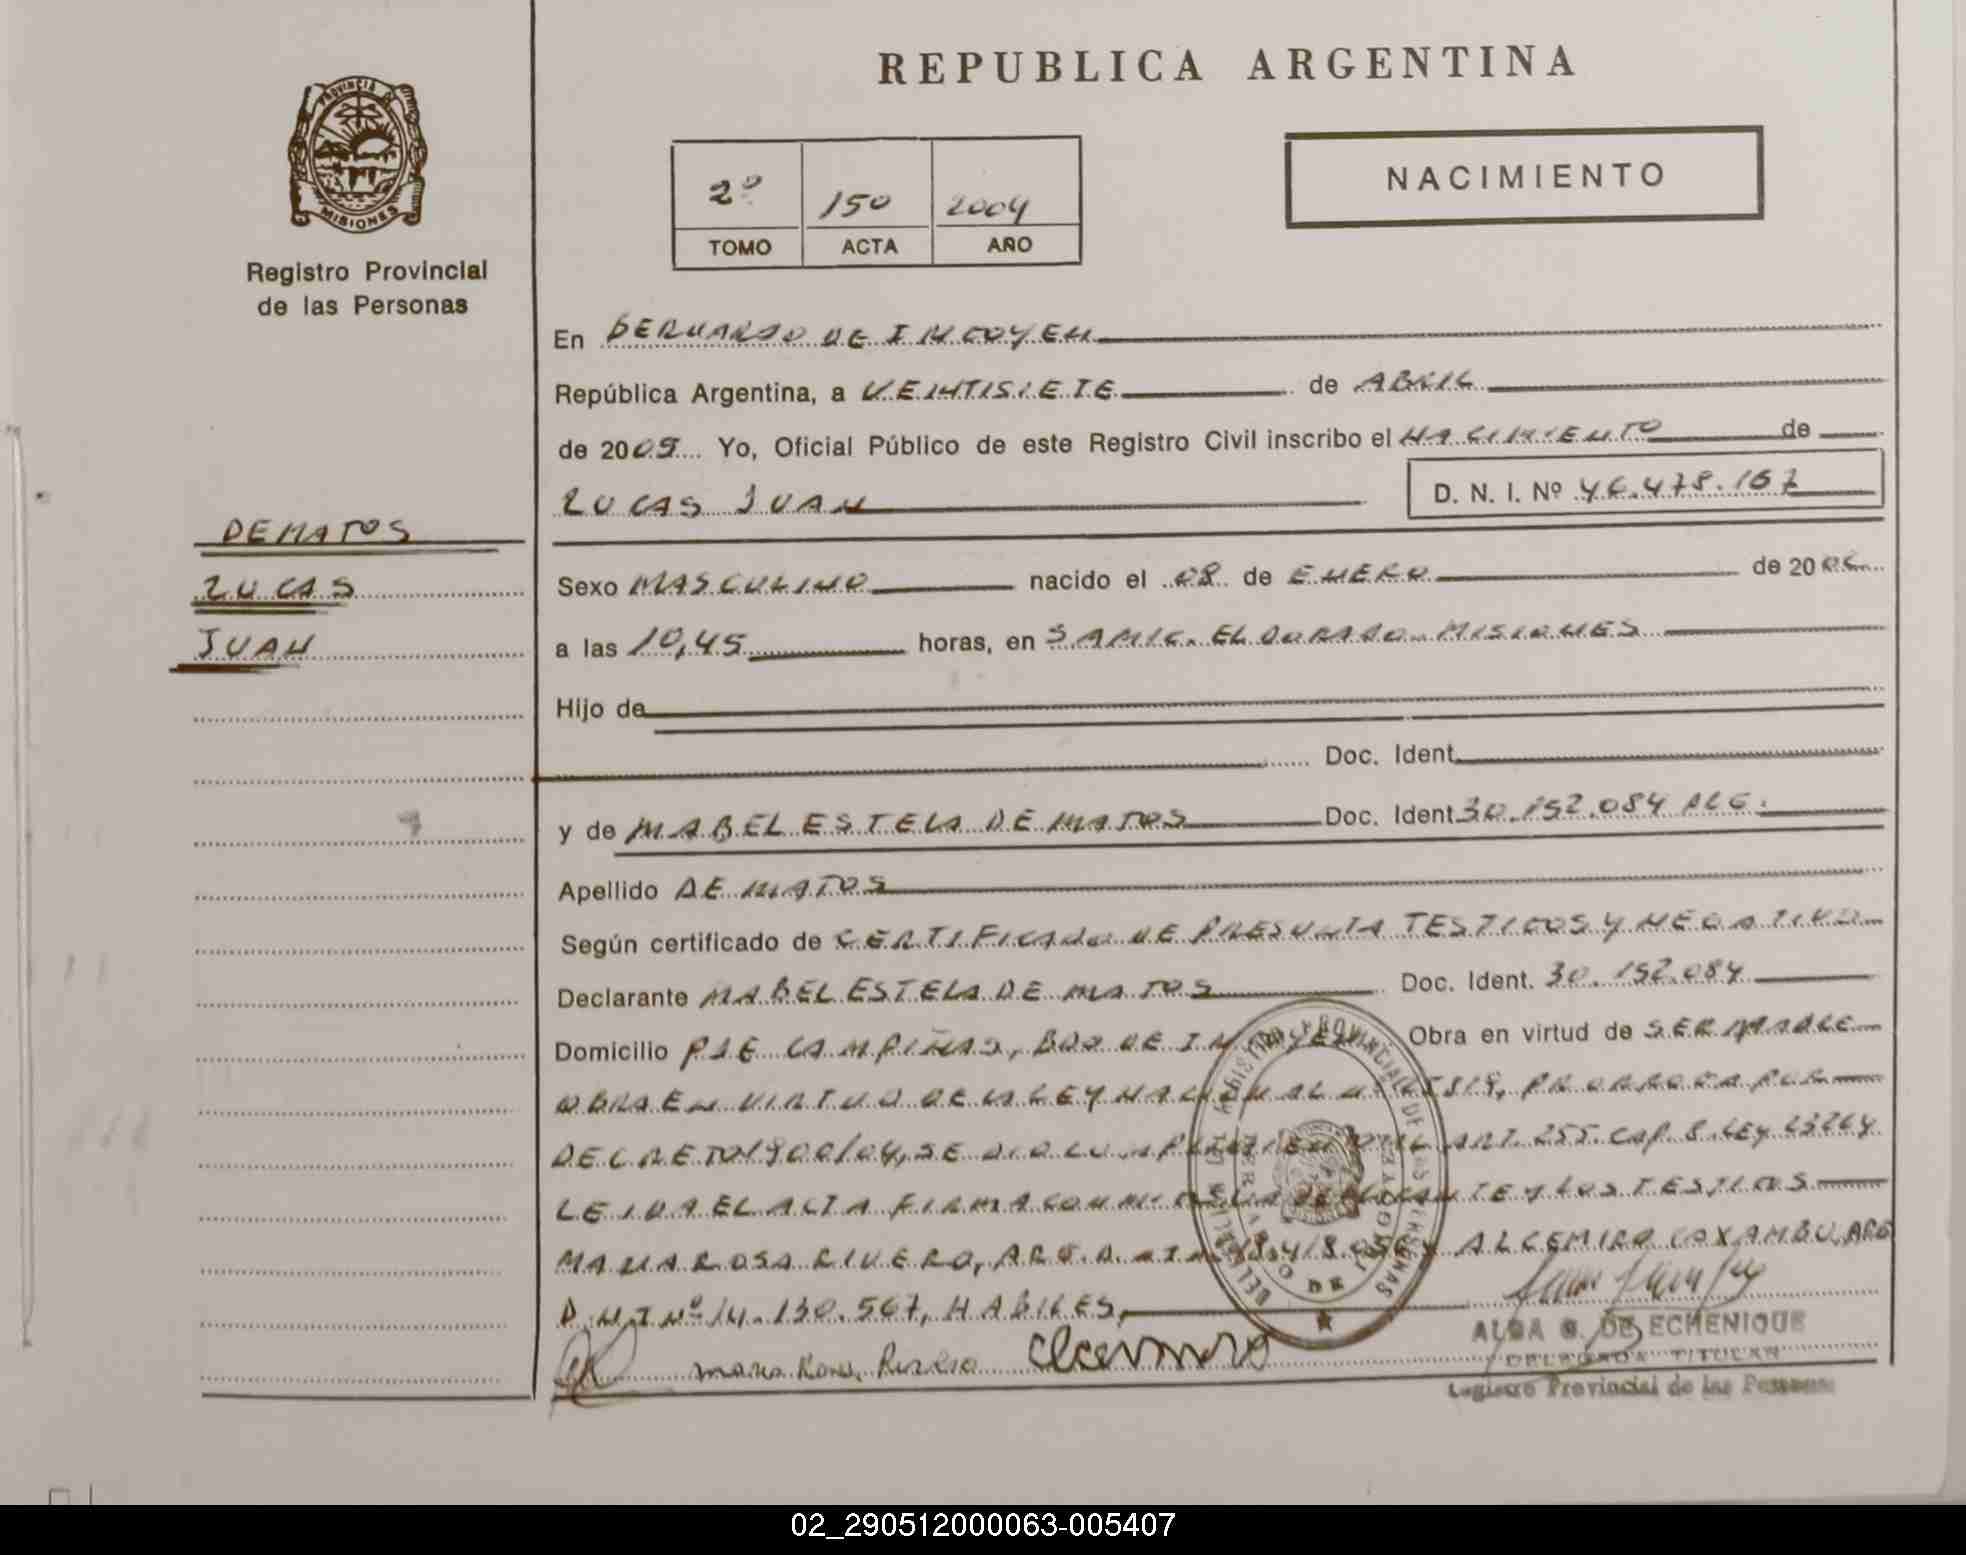 REPUBLICA ARGENTINA
PROVINCIA DE
MISIONES
Registro Provincial
de las Personas
2º 150 2004
TOMO ACTA AÑO
NACIMIENTO
En BERNARDO DE IRIGOYEN
República Argentina, a VEINTISIETE de ABRIL
de 2009 Yo, Oficial Público de este Registro Civil inscribo el NACIMIENTO de
LUCAS JUAN
D. N. I. Nº
DEMATOS
LUCAS
JUAN
Sexo MASCULINO nacido el 08 de ENERO de 20
a las 10,45 horas, en SAMIC. ELDORADO. MISIONES
Hijo de
Doc. Ident.
y de MABEL ESTELA DE MATOS Doc. Ident. 30.152.084 ARG.
Apellido DE MATOS
Según certificado de CERTIFICADO DE PRESUNTA TESTIGOS Y NEGATIVO
Declarante MABEL ESTELA DE MATOS Doc. Ident. 30.152.084
Domicilio PJE CAMPIÑAS, BDO DE Obra en virtud de SER MADRE
OBRA EN VIRTUD DE LA LEY NACIONAL PRORROGA POR
DECRETO SE DIO CUMPLIMIENTO ART. 255. CAP. 8. LEY
LEIDA EL ACTA FIRMA CONMIGO LA DECLARANTE Y LOS TESTIGOS
MARIA ROSA RIVERO, ARG. D.N.I. ALCEMIRO CAXAMBU, ARG
D.N.I Nº 14.130.567, HABILES,
Maria Rosa Rivero Alcemiro
REGISTRO PROVINCIAL DE LAS PERSONAS
BERNARDO DE IRIGOYEN
ALBA G. DE ECHENIQUE
DELEGADA TITULAR
Registro Provincial de las Personas
02_290512000063-005407